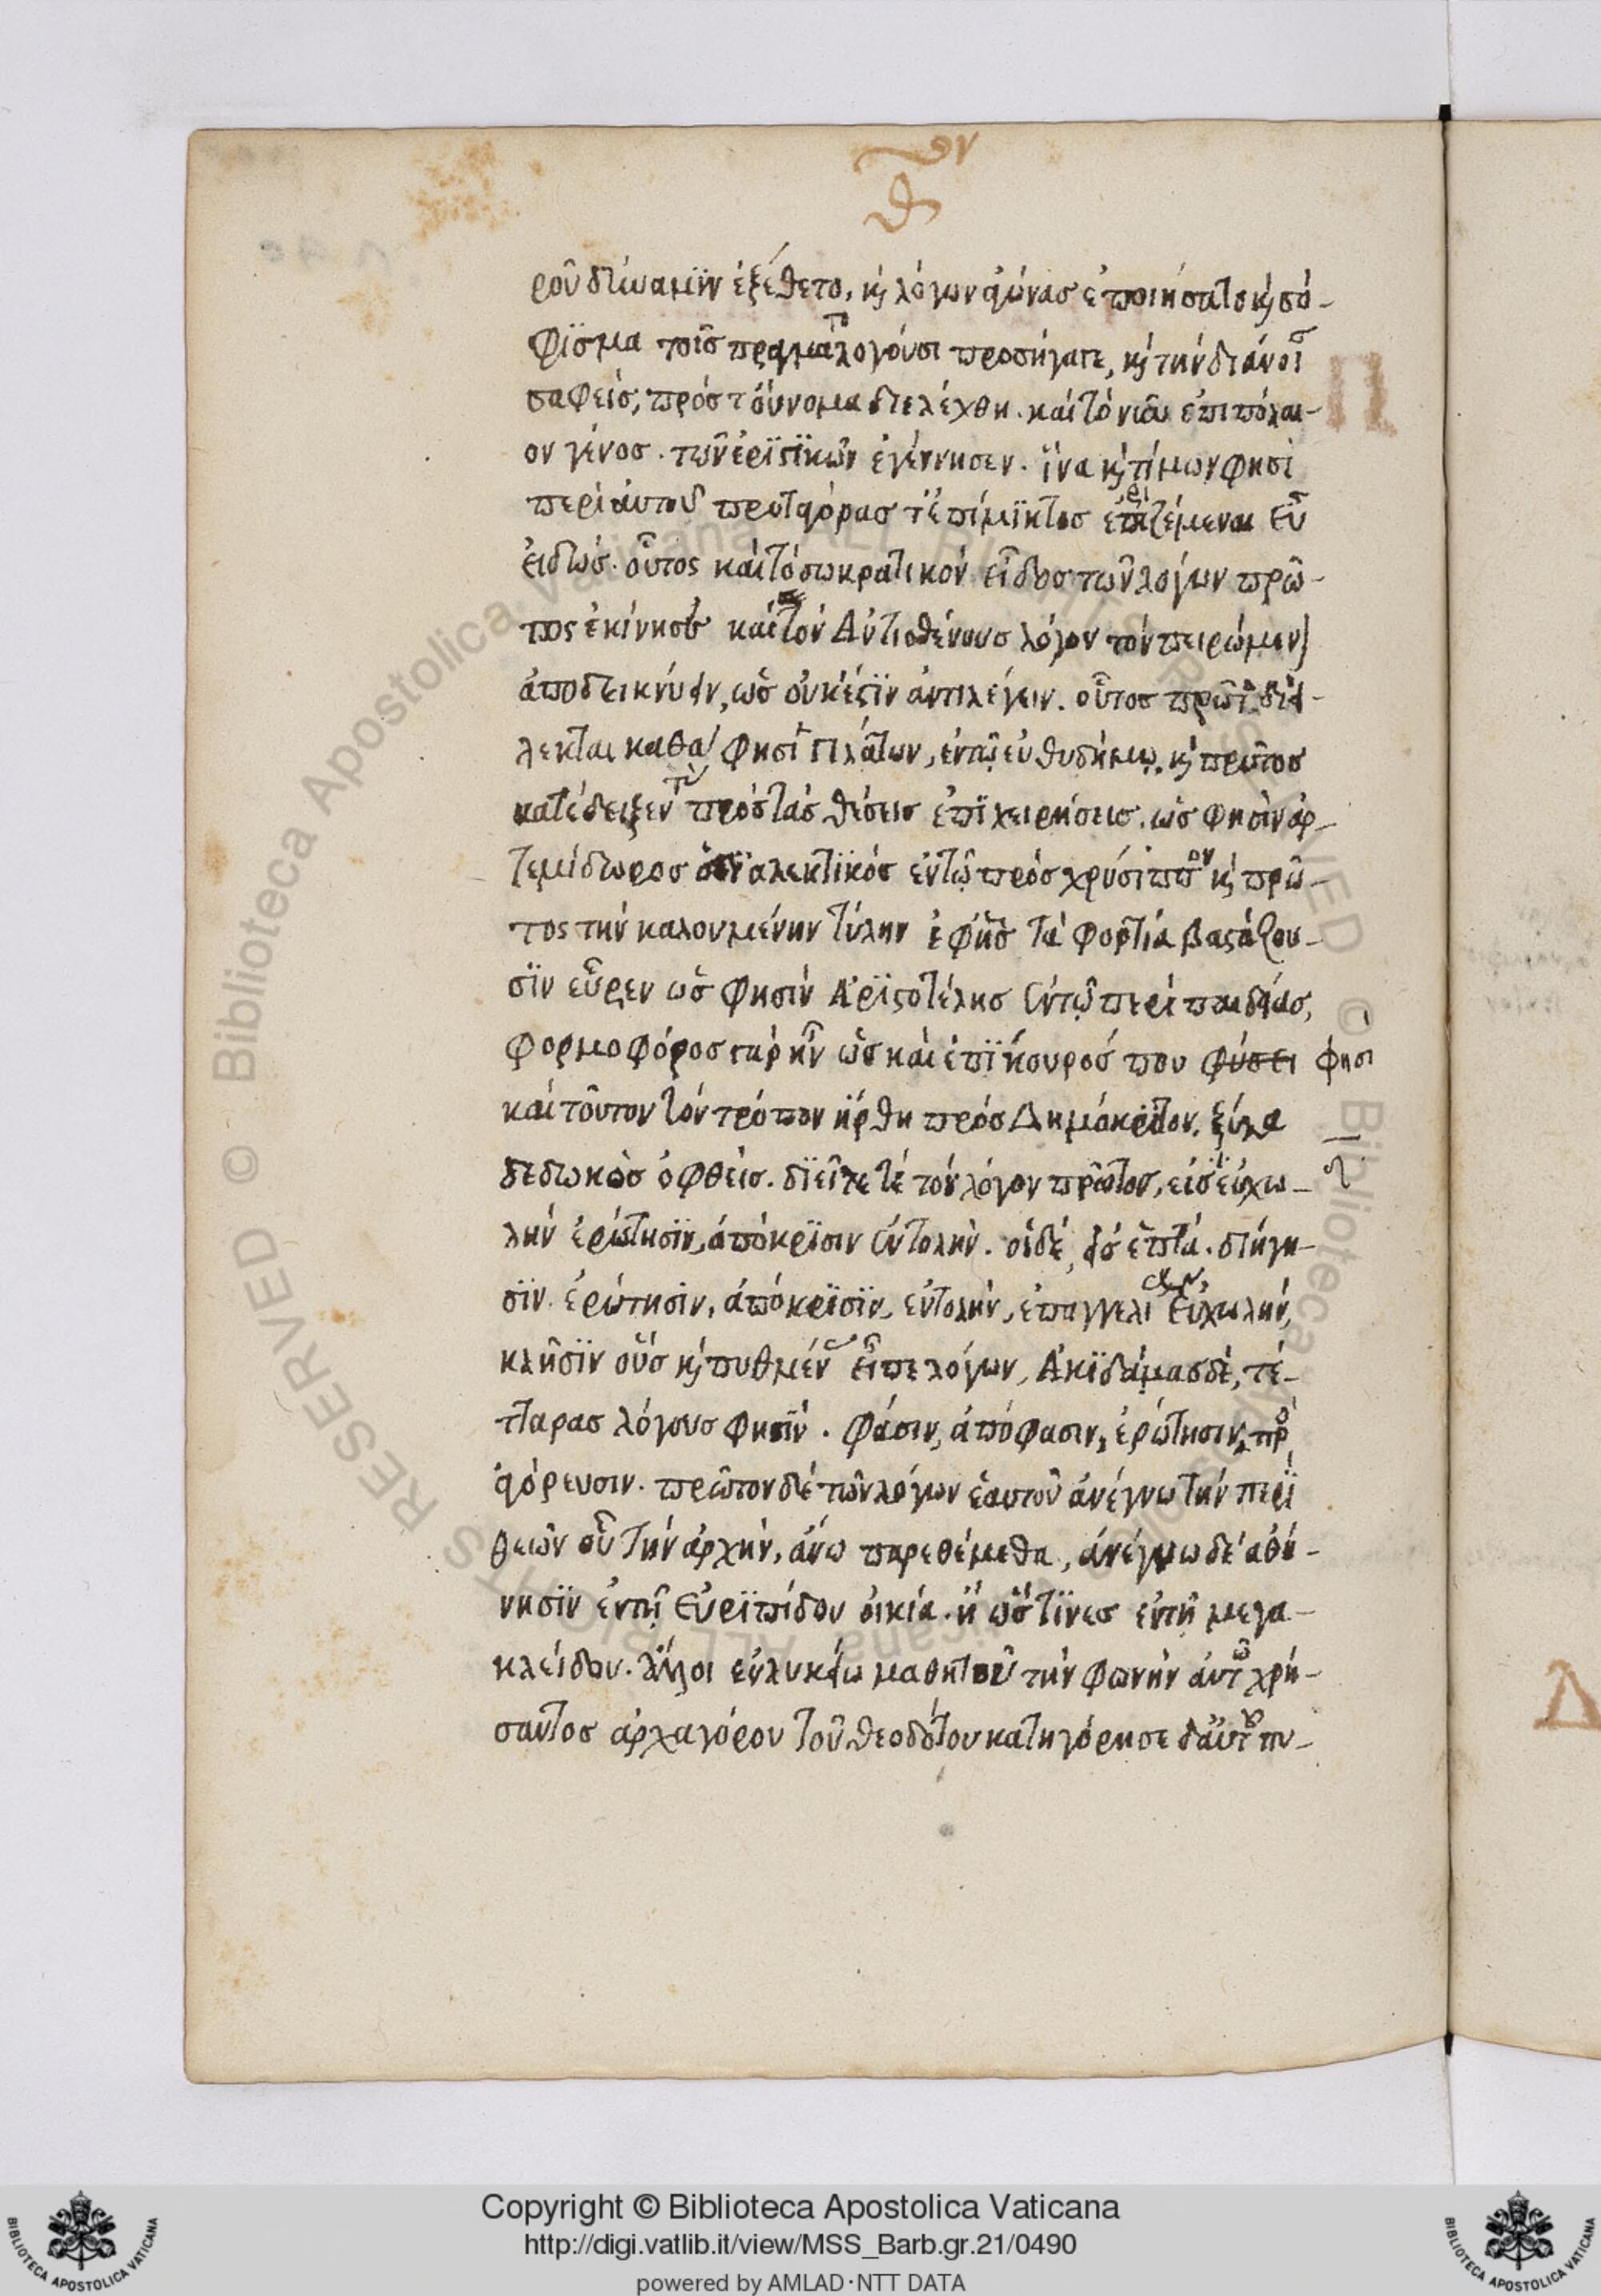 θον
ροῦ δύναμϊν ἐξέθετο, κὴ λόγων ἀγῶνας ἐποιήσατο κὴ σό-
φϊσμα τοῖς πραγματολογοῦσι προσήγαγε, κὴ τὴν διάνοι
ἀφεὶς, πρὸς τοὔνομα διελέχθη. καὶ τὸ νῦν ἐπιπόλαι-
ον γένος. τῶν ἐρϊστϊκῶν ἐγέννησεν. ἵνα κὴ τίμων φησὶ
περὶ αὐτοῦ πρωταγόρας τ' ἐπίμϊκτος ἐριζέμεναι εὖ
εἰδώς. οὗτος καὶ τὸ σωκρατικὸν εἶδος τῶν λόγων πρῶ-
τος ἐκίνησε καὶ τὸν Ἀντισθένους λόγον τὸν πειρώμεν
ἀποδεικνύειν, ὡς οὐκ ἔστϊν ἀντιλέγειν. οὗτος πρῶτ διεί-
λεκται καθὰ φησὶ Πλάτων, ἐν τῷ εὐθυδήμῳ. κὴ πρῶτος
κατέδειξεν τὰ πρὸς τὰς θέσεις ἐπϊχειρήσεις. ὡς φησὶν ἀρ-
τεμίδωρος ὁ διαλεκτϊκὸς ἐν τῷ πρὸς χρύσιππον κὴ πρῶ-
τος τὴν καλουμένην τύλην ἐφ' ἧς τὰ φορτία βαστάζου-
σϊν εὗρεν ὡς φησὶν Ἀρϊστοτέλης ἐν τῷ περὶ παιδείας,
φορμοφόρος γὰρ ἦν ὡς καὶ ἐπϊκουρός που φύσει φησι
καὶ τοῦτον τὸν τρόπον ἤρθη πρὸς Δημόκρϊτον. ξύλα
δεδωκὼς ὀφθείς. δϊεῖλε τὲ τὸν λόγον πρῶτος, εἰς εὐχω-
λὴν ἐρώτησϊν, ἀπόκρϊσιν ἐντολὴν. οἱ δὲ, εἰς ἑπτά. διήγη-
σϊν. ἐρώτησιν, ἀπόκρϊσϊν, ἐντολὴν, ἐπαγγελι Εὐχωλήν,
κλῆσϊν οὓς κὴ πυθμέν εἶπε λόγων, Ἀκϊδάμας δὲ, τέ-
τταρας λόγους φησϊν. φάσιν, ἀπόφασιν, ἐρώτησιν, προ
αγόρευσιν. πρῶτον δὲ τῶν λόγων ἑαυτοῦ ἀνέγνω τὴν περὶ
θεῶν οὗ τὴν ἀρχὴν, ἄνω παρεθέμεθα, ἀνέγνω δὲ ἀθή-
νησϊν ἐν τῇ Εὐρϊπίδου οἰκία. ἢ ὥς τϊνες ἐν τῇ μεγα-
κλείδου. ἄλλοι ἐν λυκείω μαθητοῦ τὴν φωνὴν αὐτῶ χρή-
σαντος ἀρχαγόρου τοῦ θεοδότου κατηγόρησε δ' αὐτοῦ πυ-
Copyright © Biblioteca Apostolica Vaticana
http://digi.vatlib.it/view/MSS_Barb.gr.21/0490
powered by AMLAD·NTT DATA